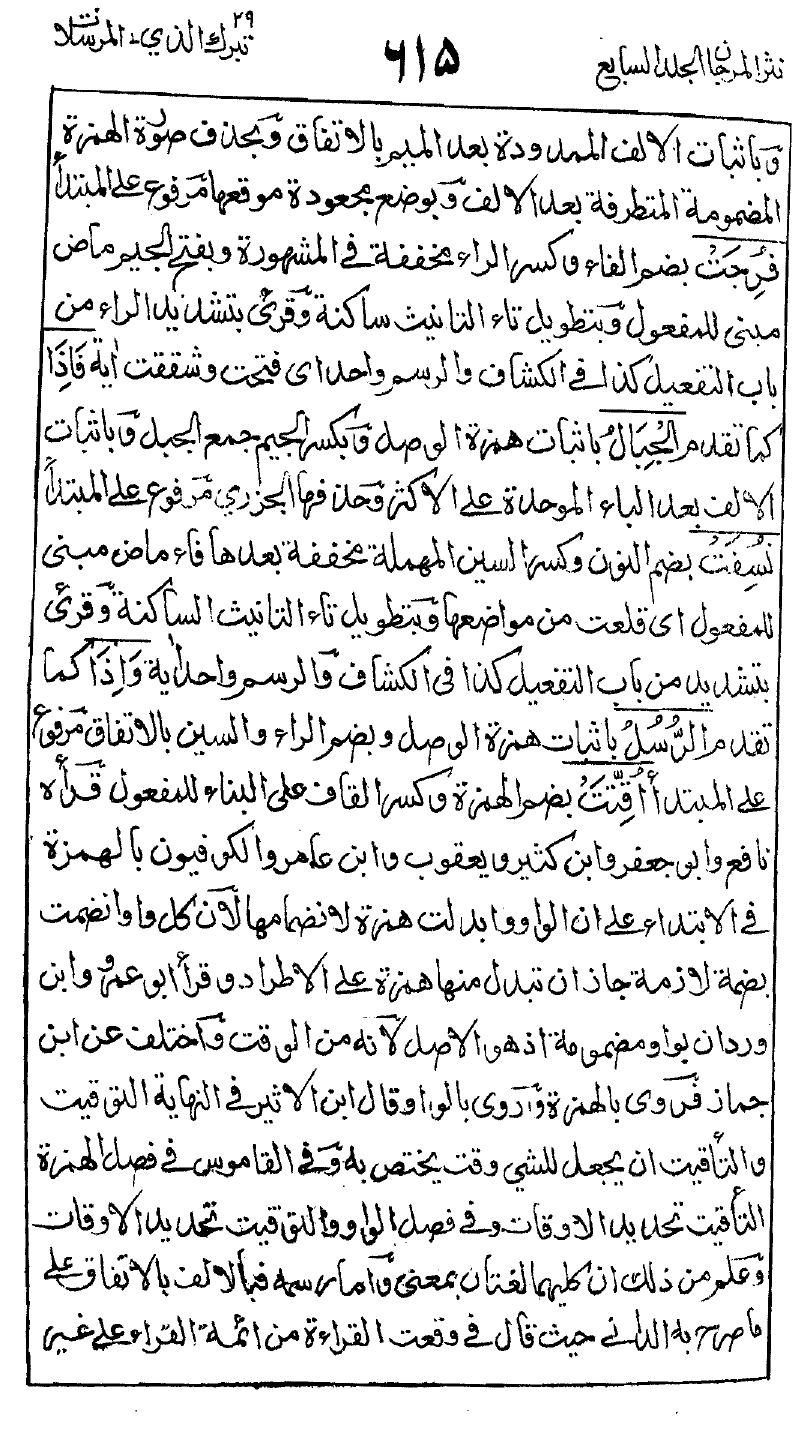 نثر المرجان الجلد السابع
٦١۵
تبرك الذي ٢٩ - المرسلات
وباثبات الالف الممدودة بعد الميم بالاتفاق وبحذف صورة الهمزة
المضمومة المتطرفة بعد الالف وبوضع مجعودة موقعها مرفوع على المبتدأ
فُرِجَتْ بضم الفاء وكسر الراء مخففة في المشهورة وبفتح الجيم ماض
مبنى للمفعول وبتطويل تاء التانيث ساكنة وقرئ بتشديد الراء من
باب التفعيل كذا في الكشاف والرسم واحد اى فتحت وشققت اٰية فَاِذَا
كما تقدم الْجِبَالُ باثبات همزة الوصل وبكسر الجيم جمع الجبل وباثبات
الالف بعد الباء الموحدة على الاكثر وحذفها الجزري مرفوع على المبتدأ
نُسِفَتْ بضم النون وكسر السين المهملة مخففة بعدها فاء ماض مبنى
للمفعول اى قلعت من مواضعها وبتطويل تاء التانيث الساكنة وقرئ
بتشديد من باب التفعيل كذا فى الكشاف والرسم واحد اٰية وَاِذَا كما
تقدم الرُّسُلُ باثبات همزة الوصل وبضم الراء والسين بالاتفاق مرفوع
على المبتدأ اُقِّتَتْ بضم الهمزة وكسر القاف على البناء للمفعول قرأه
نافع وابو جعفر وابن كثير ويعقوب وابن عامر والكوفيون بالهمزة
في الابتداء على ان الواو ابدلت همزة لانضمامها لان كل واو انضمت
بضمة لازمة جاز ان تبدل منها همزة على الاطراد وقرأ ابو عمرو وابن
وردان بواو مضمومة اذ هو الاصل لانه من الوقت واختلف عن ابن
جماز فروى بالهمزة وروى بالواو قال ابن الاثير في النهاية التوقيت
والتأقيت ان يجعل للشي وقت يختص به وفي القاموس في فصل الهمزة
التأقيت تحديد الاوقات وفي فصل الواو والتوقيت تحديد الاوقات
وعلم من ذلك ان كليهما لغتان بمعنى واما رسمه فبالالف بالاتفاق على
ما صرح به الداني حيث قال في وقعت القراءة من ائمة القراء على غير